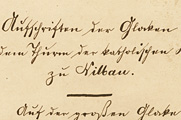 Aufschriften der Glocken
dem Thurm der katholischen
zu Nilbau.
Auf der großen Glocke